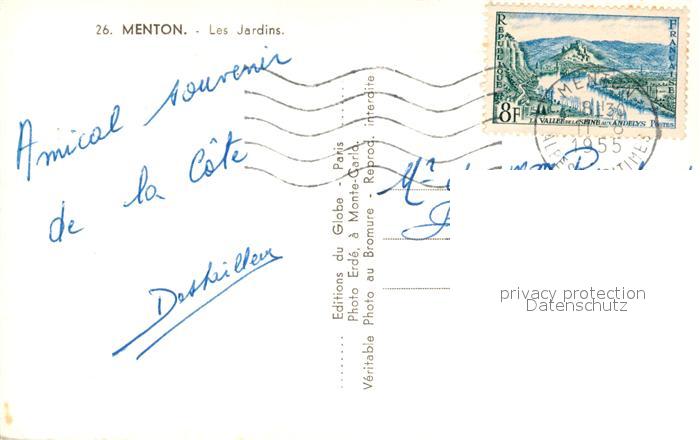 26. MENTON. - Les Jardins.
Amical souvenir
de la Côte
Editions du Globe - Paris
Photo Erdé, à Monte-Carlo.
Véritable Photo au Bromure - Reprod. interdite
REPUBLIQUE FRANÇAISE
8F
LA VALLÉE DE LA SEINE AUX ANDELYS POSTES
MENTON
1955
MARITIMES
Mr
privacy protection
Datenschutz